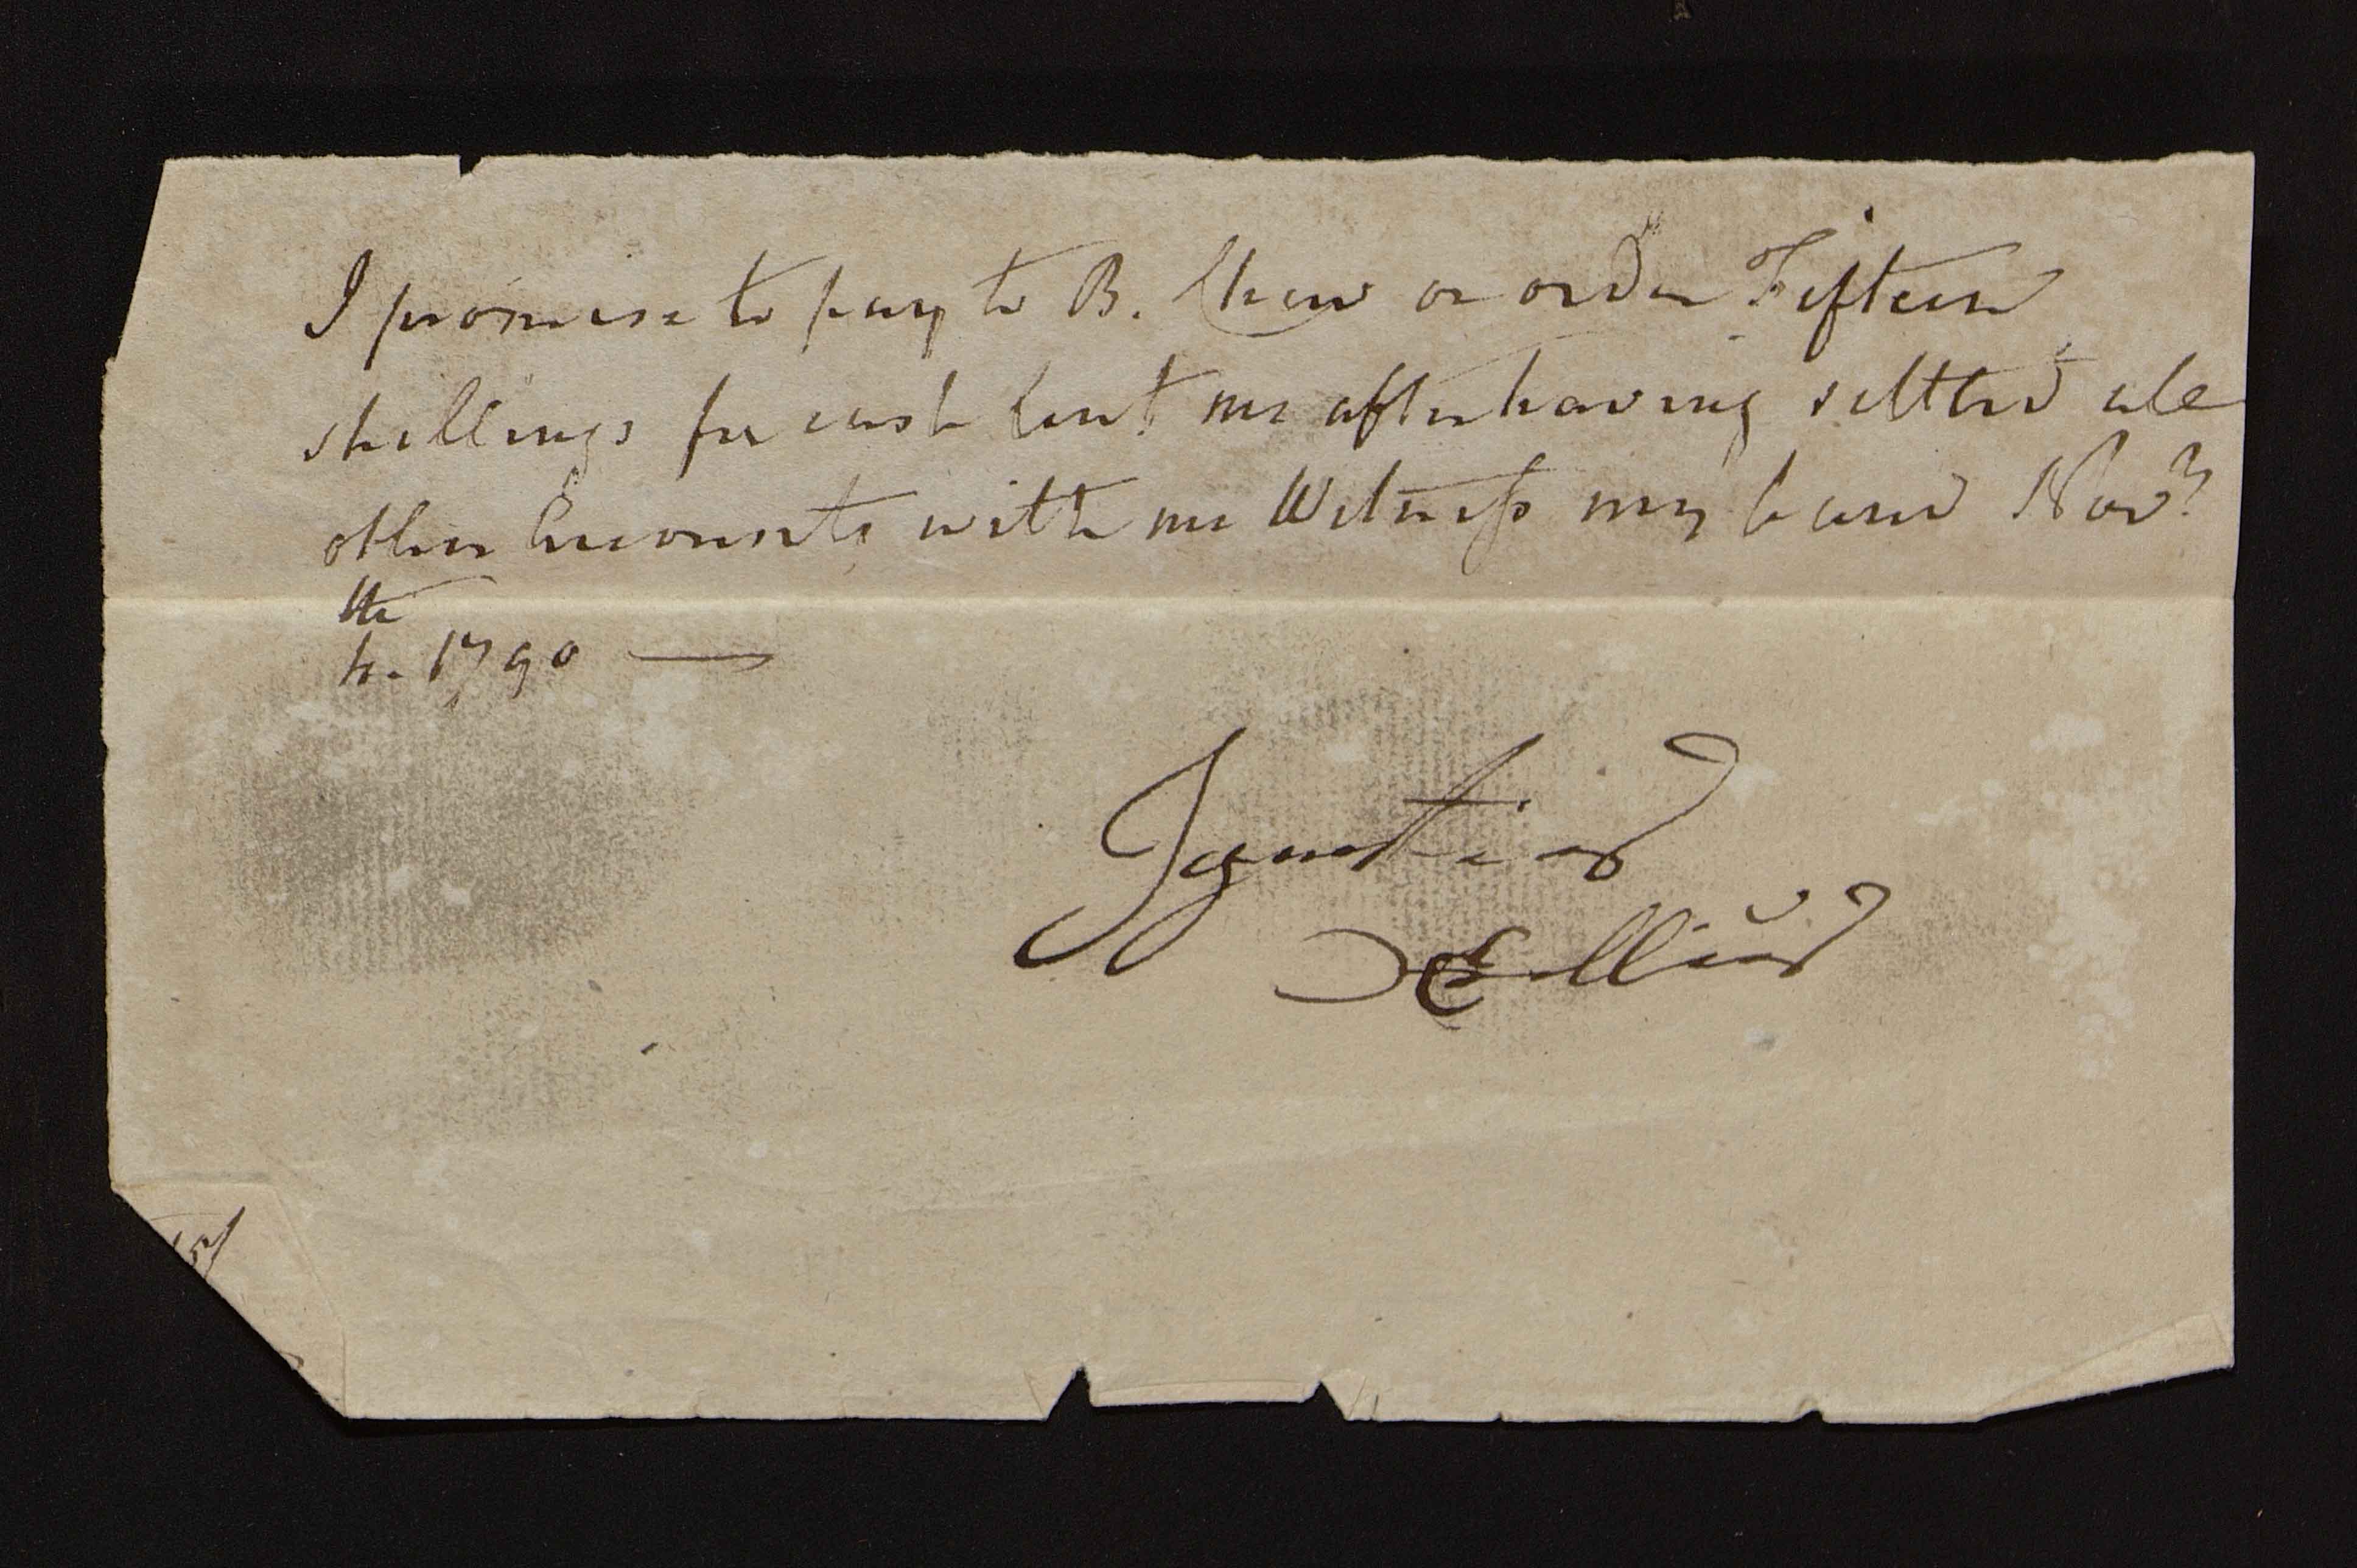 I promise to pay to B. Chew or order Fifteen
shillings for cash lent me after having settled all
other Accounts with me Witness my hand Novr
4th. 1790
Ignatius
Ellis
15/